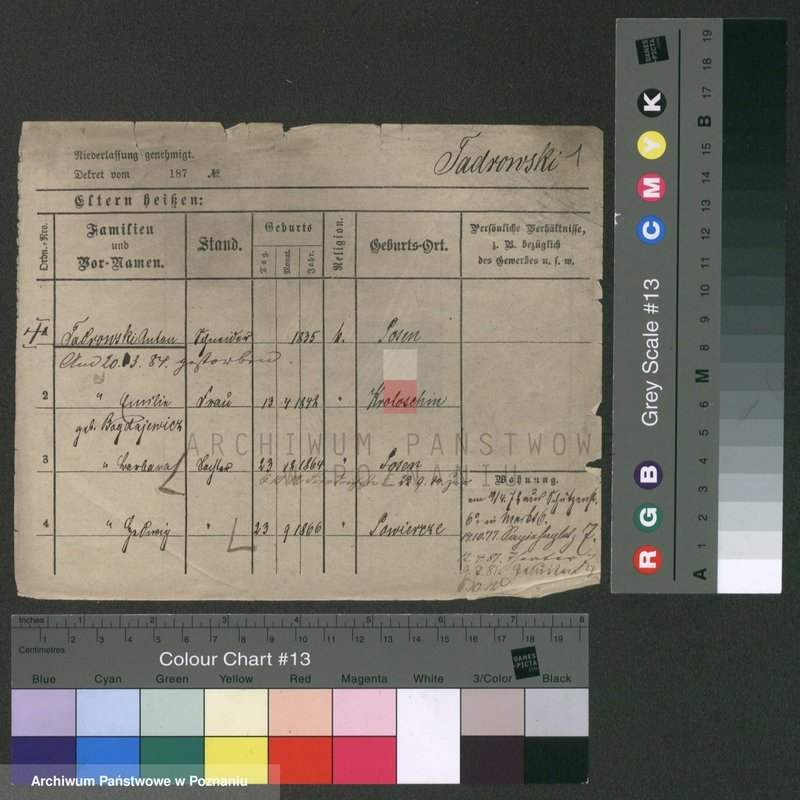 Niederlassung genehmigt.
Dekret vom 187 №
Tadrowski 1
Eltern heißen:
Ordn.-Nro.
Familien
und
Vor-Namen.
Stand.
Geburts
Tag.
Monat.
Jahr.
Religion.
Geburts-Ort.
Persönliche Verhältnisse,
z. B. bezüglich
des Gewerbes u. s. w.
1 Tadrowski Anton Schneider 1835 k. Posen
Am 20.3.84. gestorben.
2 " Emilie Frau 13 4 1842 " Krotoschin
geb. Bogdajewicz
3 " Barbara Tochter 23 12 1864 " Posen
4 " Hedwig " 23 9 1866 "
Wohnung.
ARCHIWUM PAŃSTWOWE
W POZNANIU
Grey Scale #13
R G B C M Y K
A 1 2 3 4 5 6 M 8 9 10 11 12 13 14 15 B 17 18 19
DANES
PICTA
Inches 1 2 3 4 5 6 7 8
1 2 3 4 5 6 7 8 9 10 11 12 13 14 15 16 17 18 19
Centimetres
Colour Chart #13
DANES
PICTA
Blue Cyan Green Yellow Red Magenta White 3/Color Black
Archiwum Państwowe w Poznaniu